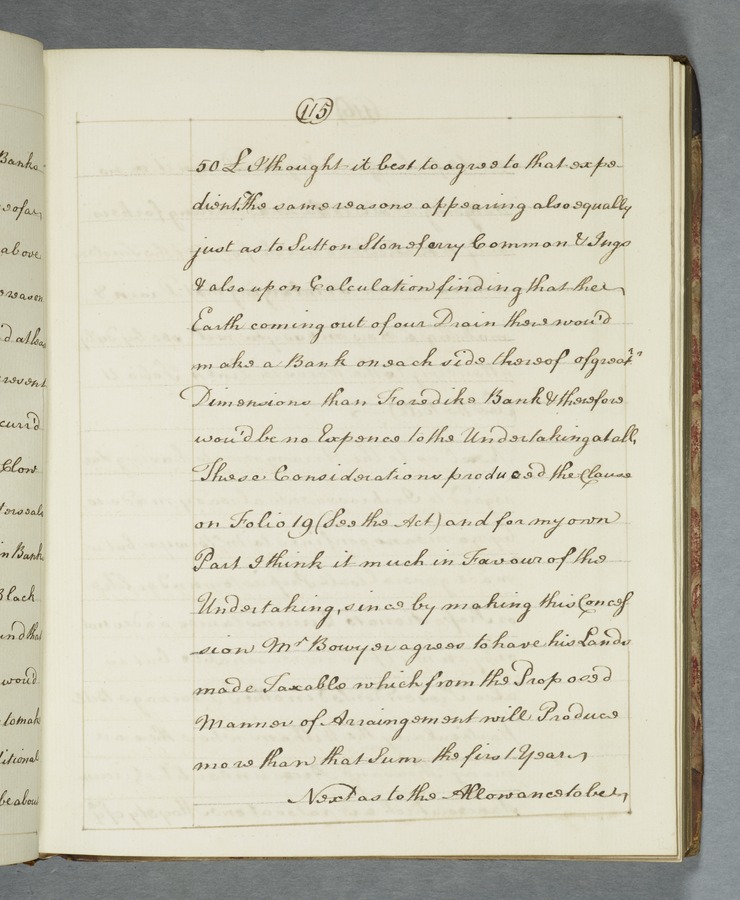 115
50 £ & thought it best to agree to that expe-
dient. The same reasons appearing also equally
just as to Sutton Stoneferry Common & Ings
& also upon Calculation finding that the
Earth coming out of our Drain there wou'd
make a Bank on each side thereof of great'r
Dimensions than Foredike Bank & therefore
wou'd be no Expence to the Undertaking at all,
These Considerations produced the Clause
on Folio 19 (See the Act) and for my own
Part I think it much in Favour of the
Undertaking, since by making this Conces
sion Mr Bowyer agrees to have his Lands
made Taxable which from the Proposed
Manner of Arraingement will Produce
more than that Sum the first Year
Next as to the Allowance to be
Banks
above
reason
resent
curr'd
Clow
in Bank
Black
and that
wou'd
to mak
ditional
be about